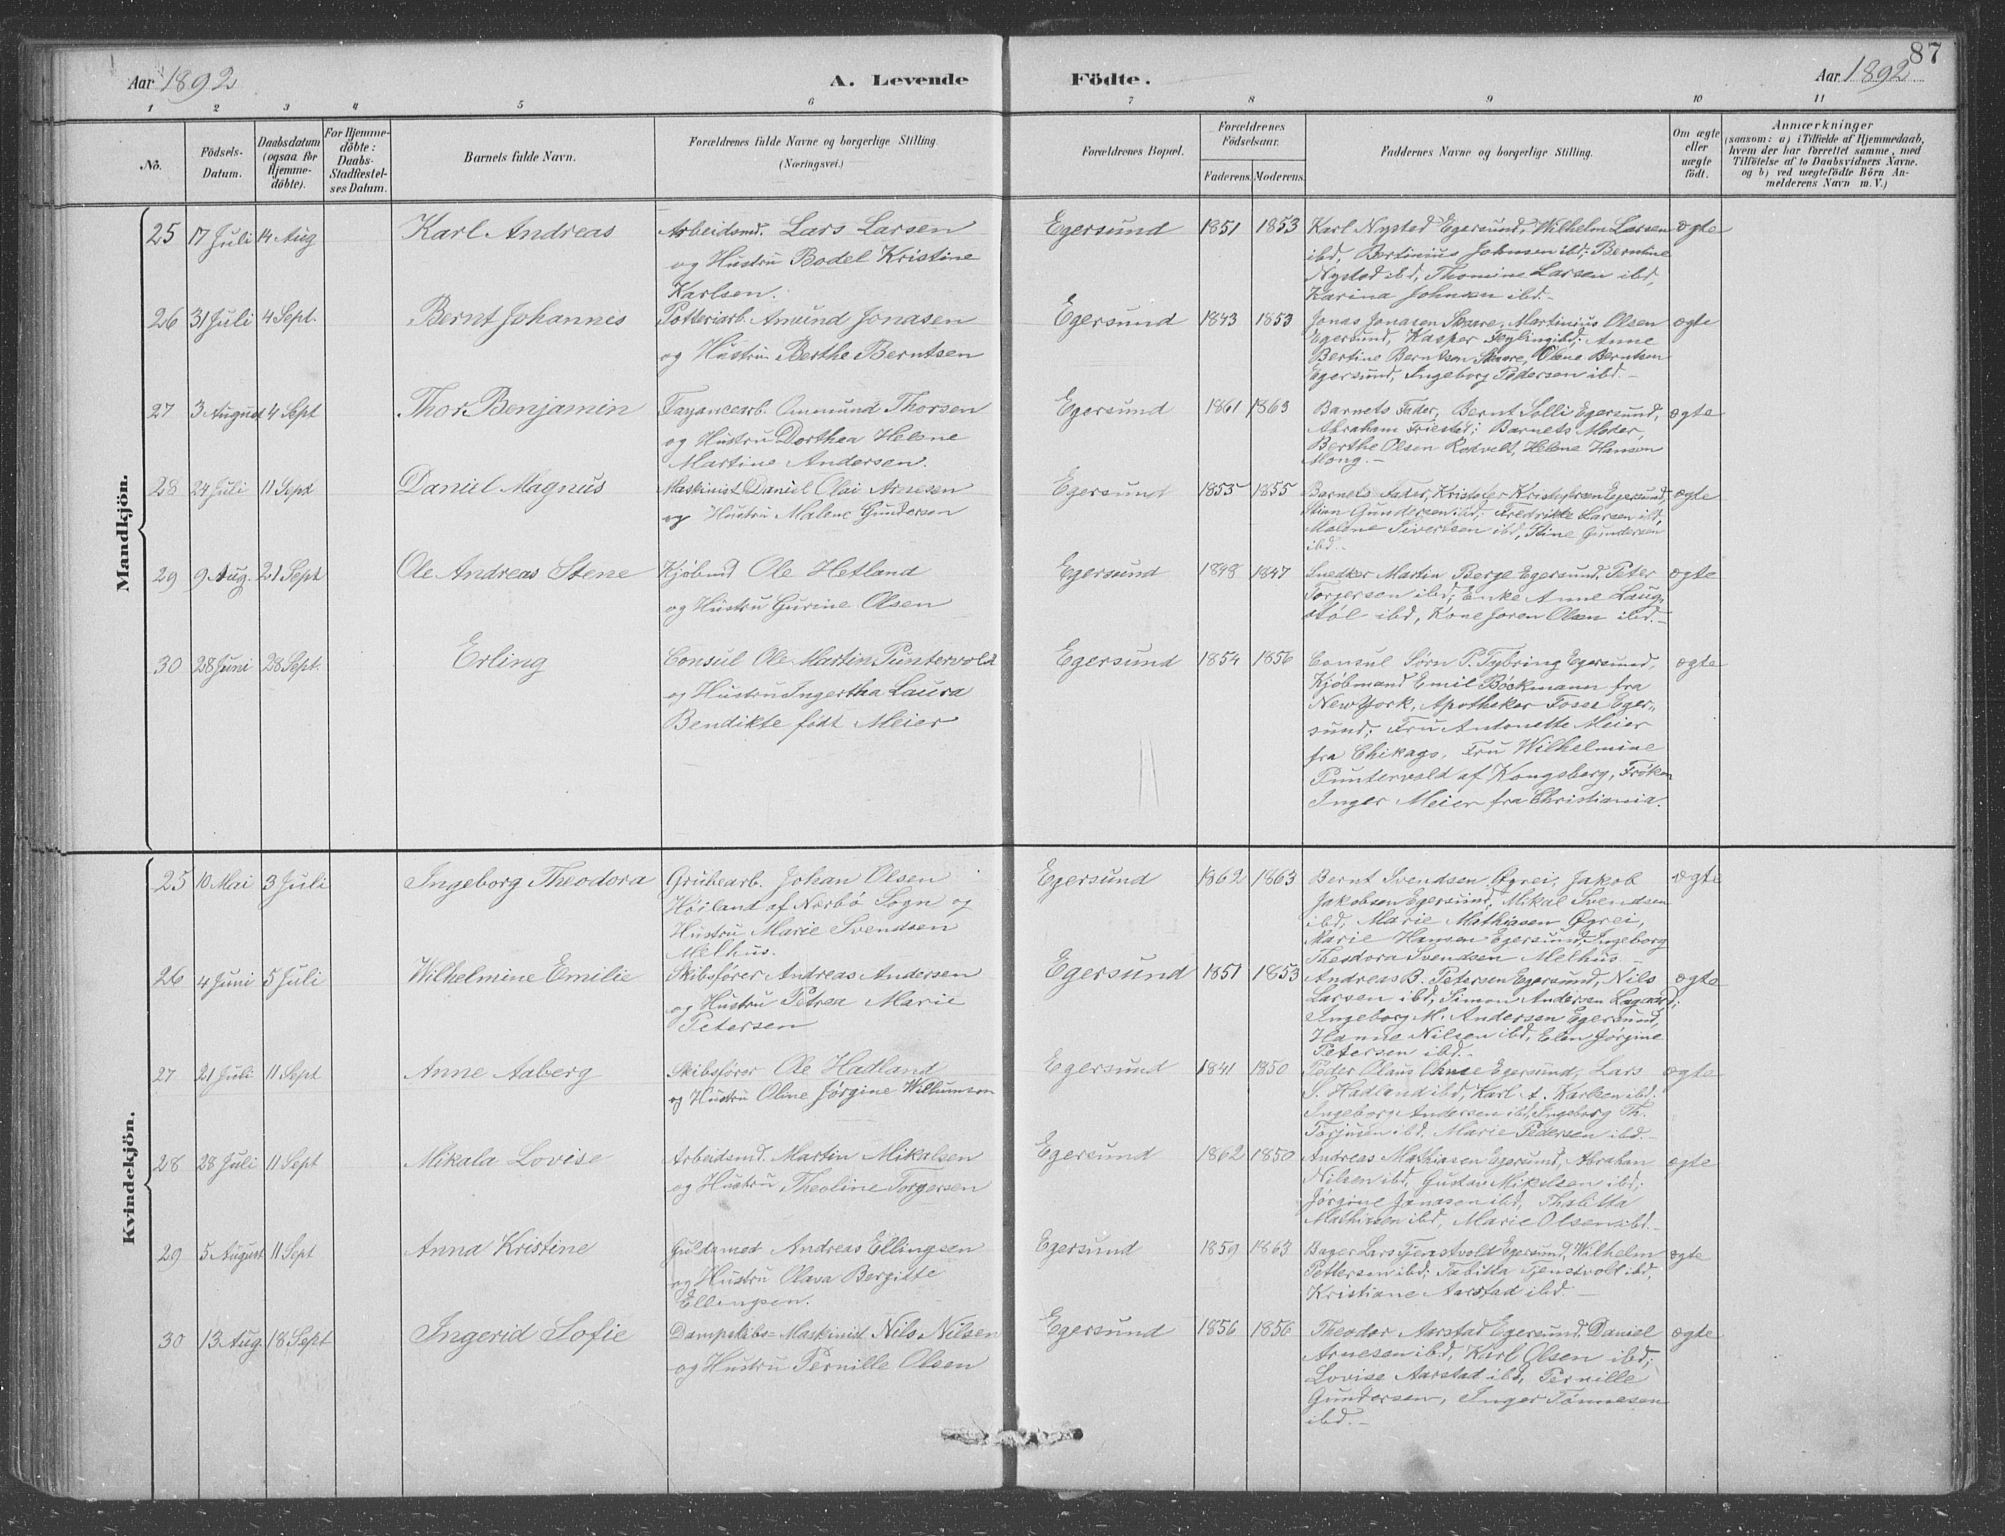 87
Aar 1892 A. Levende Födte. Aar 1892
1 2 3 4 5 6 7 8 9 10 11
No. Födsels-Datum. Daabsdatum (ogsaa for Hjemme-döbte). For Hjemme-döbte: Daabs-Stadfæstel-ses Datum. Barnets fulde Navn. Forældrenes fulde Navne og borgerlige Stilling. (Næringsvei.) Forældrenes Bopæl. Forældrenes Födselsaar. Faderens. Moderens. Faddernes Navne og borgerlige Stilling. Om ægte eller uægte födt. Anmærkninger (saasom: a) i Tilfælde af Hjemmedaab, hvem der har forrettet samme, med Tilföielse af to Daabsvidners Navne. og b) ved uægtefödte Börn An-melderens Navn m. V.)
Mandkjön.
25 17 Juli 14 Aug Karl Andreas Arbeidsmd. Lars Larsen Egersund 1851 1853 Karl Nystad Egersund, Wilhelm Larsen ægte
og Hustru Bodel Kristine ibd, Bertinius Johnsen ibd; Berntine
Karlsen. Nystad ibd, Thomine Larsen ibd,
Karina Johnsen ibd.-
26 31 Juli 4 Sept. Bernt Johannes Potteriarb. Amund Jonasen Egersund 1843 1853 Jonas Jonasen Skaare, Martinius Olsen ægte
og Hustru Berthe Berntsen Egersund, Kasper Feyling ibd; Anne
Bertine Berntsen Skaare, Olene Berntsen
Egersund, Ingeborg Pedersen ibd.-
27 3 August 4 Sept Thor Benjamin Fayancearb. Ommund Thorsen Egersund 1861 1863 Barnets Fader, Bernt Solli Egersund, ægte
og Hustru Dorthea Helene Abraham Friestad; Barnets Moder,
Martine Andersen. Berthe Olsen Rodvelt, Helene Hansen
Mong.-
28 24 Juli 11 Sept Daniel Magnus Maskinist Daniel Olai Arnesen Egersund 1855 1855 Barnets Fader, Kristofer Kristofersen Egersund, ægte
og Hustru Malene Gundersen Stian Gundersen ibd; Fredrikke Larsen ibd,
Malene Sivertsen ibd, Stine Gundersen
ibd.-
29 9 Aug. 21 Sept Ole Andreas Stene Kjøbmd Ole Hetland Egersund 1848 1847 Snedker Martin Berge Egersund, Peter ægte
og Hustru Gurine Olsen Torgersen ibd; Enke Anne Laug-
støl ibd, Kone Joren Olsen ibd.-
30 28 Juni 28 Sept. Erling Consul Ole Martin Puntervold Egersund 1854 1856 Consul Sørn P. Tybring Egersund, ægte
og Hustru Ingertha Laura Kjøbmand Emil Böckmann fra
Bendikte født Meier New York, Apotheker Fosse Eger-
sund; Fru Antonette Meier
fra Chikago, Fru Wilhelmine
Puntervold af Kongsberg, Frøken
Inger Meier fra Christiania.
Kvindekjön.
25 10 Mai 3 Juli Ingeborg Theodora Grubearb. Johan Olsen Egersund 1862 1863 Bernt Svendsen Øgrei, Jakob ægte
Høiland af Nærbø Sogn og Jakobsen Egersund, Mikal Svendsen
Hustru Marie Svendsen ibd, Marie Mathiasen Øgrei,
Melhus. Marie Hansen Egersund, Ingeborg
Theodora Svendsen Melhus.-
26 4 Juni 5 Juli Wilhelmine Emilie Skibsfører Andreas Andersen Egersund 1851 1853 Andreas B. Petersen Egersund, Nils ægte
og Hustru Petrea Marie Larsen ibd, Simon Andersen Lagaard;
Petersen Ingeborg M. Andersen Egersund,
Hanne Nilsen ibd, Elen Jørgine
Petersen ibd.-
27 21 Juli 11 Sept Anne Aaberg Skibsfører Ole Hatland Egersund 1841 1850 Peder Olaus Egersund, Lars ægte
og Hustru Oline Jørgine Willumsen S. Hadland ibd, Karl A. Karlsen ibd;
Ingeborg Andersen ibd, Ingeborg Th.
Torjusen ibd. Marie Pedersen ibd.-
28 28 Juli 11 Sept Mikala Lovise Arbeidsmd. Martin Mikalsen Egersund 1862 1850 Andreas Mathiasen Egersund, Abrahan ægte
og Hustru Theoline Torgersen Nilsen ibd, Gustav Mikalsen ibd;
Jørgine Jonassen ibd, Thalitta
Mathiasen ibd, Marie Olsen ibd.-
29 5 August 11 Sept Anna Kristine Guldsmed Andreas Ellingsen Egersund 1859 1863 Bager Lars Tjenstvold Egersund, Wilhelm ægte
og Hustru Olava Bergitte Pettersen ibd; Tabitta Tjenstvolt ibd,
Ellingsen. Kristiane Aarstad ibd -
30 13 Aug. 18 Sept Ingerid Sofie Dampskibs-Maskinist Nils Nilsen Egersund 1856 1856 Theodor Aarstad Egersund. Daniel ægte
og Hustru Pernille Olsen Arnesen ibd, Karl Olsen ibd;
Lovise Aarstad ibd, Pernille
Gundersen, Inger Tønnesen
ibd.-